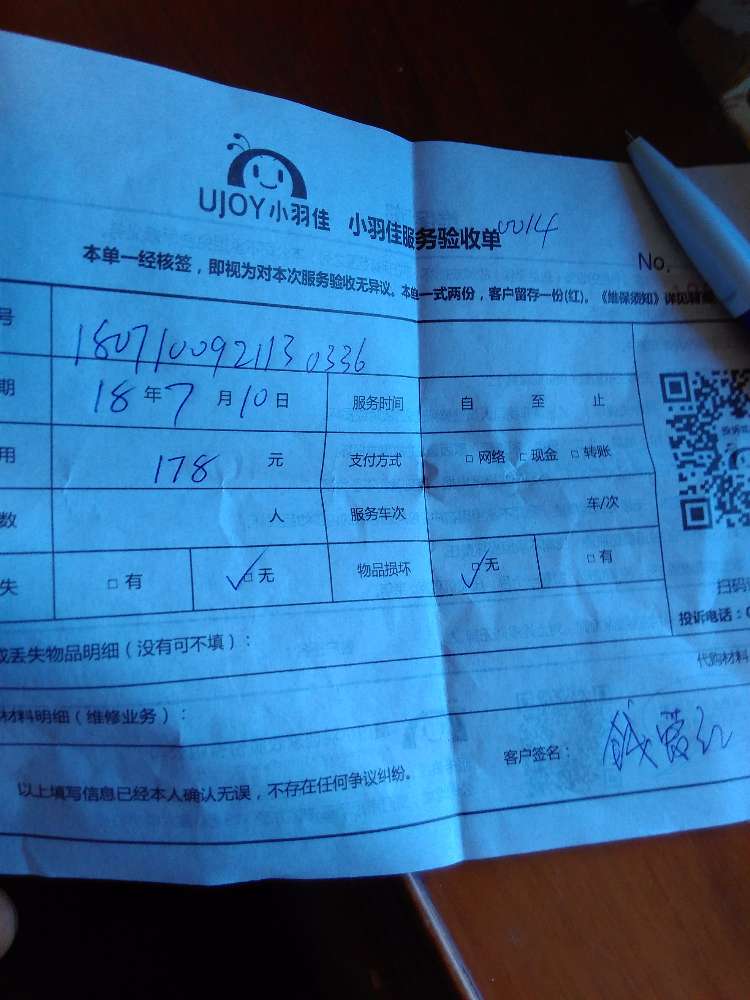 UJOY小羽佳 小羽佳服务验收单 0014
No.
本单一经核签，即视为对本次服务验收无异议。本单一式两份，客户留存一份(红)。《维保须知》详见背面
号 180710092113 0336
期 18年7月10日 服务时间 自 至 止
用 178 元 支付方式 □网络 □现金 □转账
数 人 服务车次 车/次
失 □有 ✓□无 物品损坏 ✓□无 □有
扫码
投诉电话：0
或丢失物品明细（没有可不填）：
代购材料
材料明细（维修业务）：
客户签名：
以上填写信息已经本人确认无误，不存在任何争议纠纷。